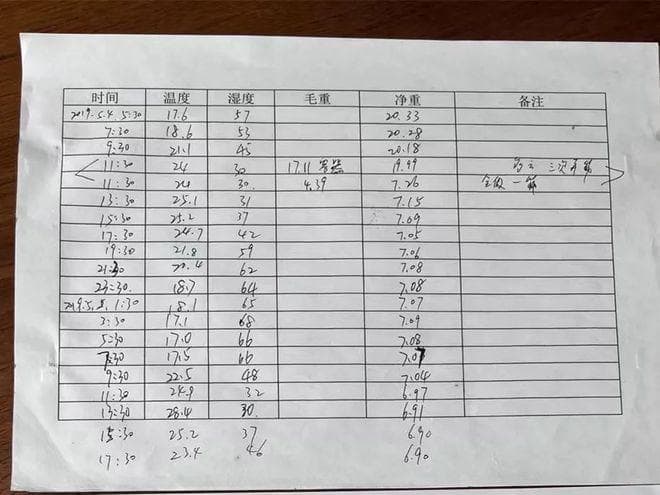 时间 温度 湿度 毛重 净重 备注
2019.5.4. 5:30 17.6 57 20.33
7:30 18.6 53 20.28
9:30 21.1 45 20.18
11:30 24 30 17.11 19.99 三次
11:30 24 30. 4.39 7.26 一
13:30 25.1 31 7.15
15:30 25.2 37 7.09
17:30 24.7 42 7.05
19:30 21.8 59 7.06
21:30 20.4 62 7.08
23:30. 18.7 64 7.08
2019.5.5. 1:30 18.1 65 7.07
3:30 17.1 68 7.09
5:30 17.0 66 7.08
7:30 17.5 66 7.07
9:30 22.5 48 7.04
11:30 24.9 32 6.97
13:30 28.4 30. 6.91
15:30 25.2 37 6.90
17:30 23.4 46 6.90